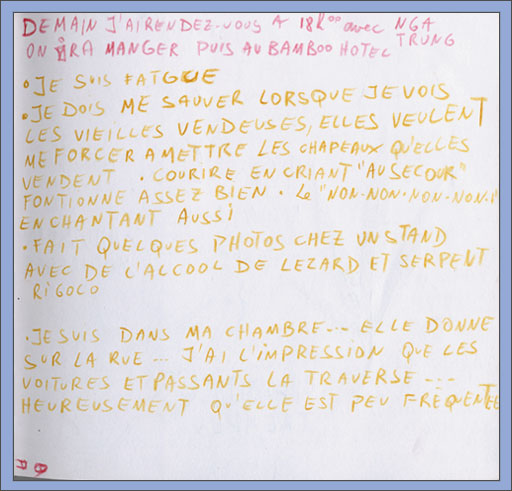 DEMAIN J'AI RENDEZ-VOUS A 18h00 avec NGA TRUNG
ON IRA MANGER PUIS AU BAMBOO HOTEL
• JE SUIS FATGUE
• JE DOIS ME SAUVER LORSQUE JE VOIS
LES VIEILLES VENDEUSES, ELLES VEULENT
ME FORCER A METTRE LES CHAPEAUX QU'ELLES
VENDENT • COURIRE EN CRIANT "AU SECOUR"
FONTIONNE ASSEZ BIEN • Le "NON-NON-NON-NON-"
EN CHANTANT AUSSI
• FAIT QUELQUES PHOTOS CHEZ UN STAND
AVEC DE L'ALCOOL DE LEZARD ET SERPENT
RIGOLO
• JE SUIS DANS MA CHAMBRE... ELLE DONNE
SUR LA RUE ... J'AI L'IMPRESSION QUE LES
VOITURES ET PASSANTS LA TRAVERSE ...
HEUREUSEMENT QU'ELLE EST PEU FREQUENTEE